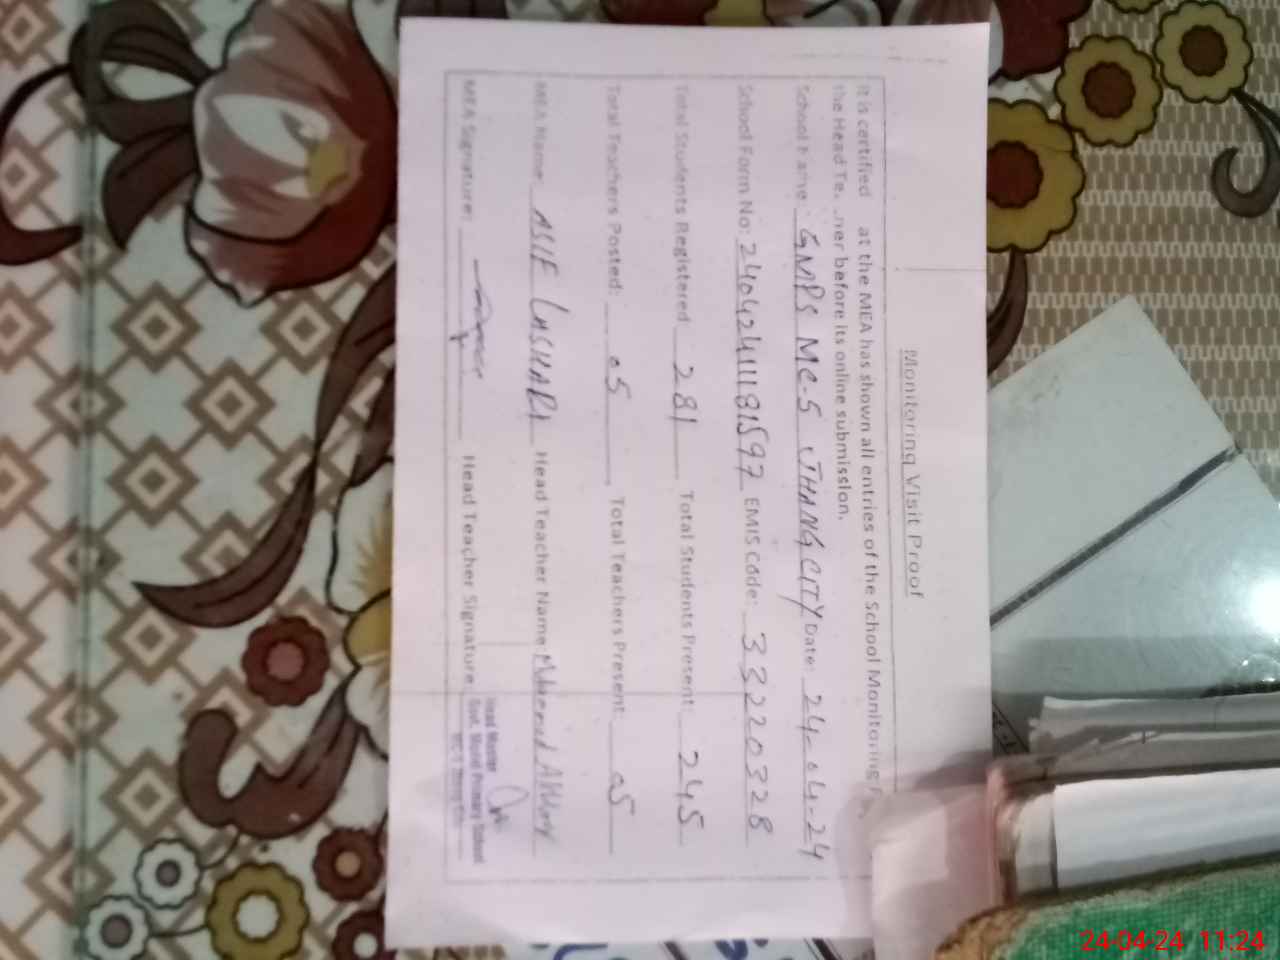 Monitoring Visit Proof
It is certified at the MEA has shown all entries of the School Monitoring
the Head before its online submission.
School Name: GMPS MC-5 JHANG CITY Date: 24-04-24
School Form No: 2404241118 1597 EMIS Code: 33220328
Total Students Registered 281 Total Students Present: 245
Total Teachers Posted: 05 Total Teachers Present: 05
MEA Name: ASIF LASHARI Head Teacher Name:
MEA Signature: Head Teacher Signature:
Head Master
Govt. Model Primary School
24-04-24 11:24